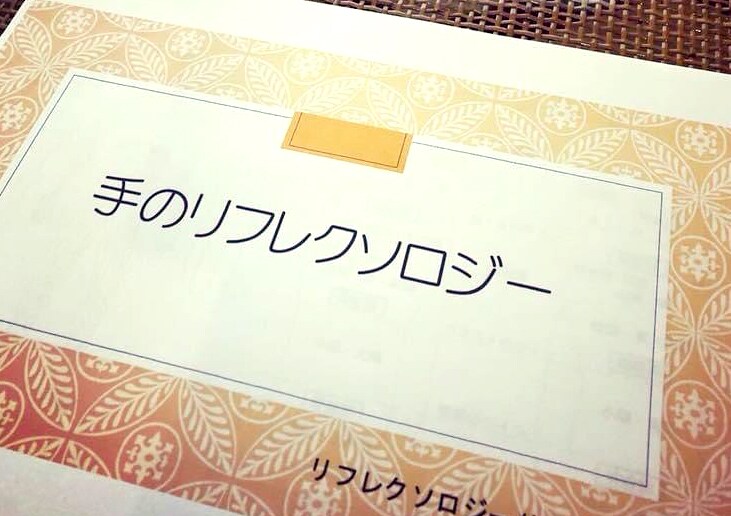 手のリフレクソロジー
リフレクソロジー